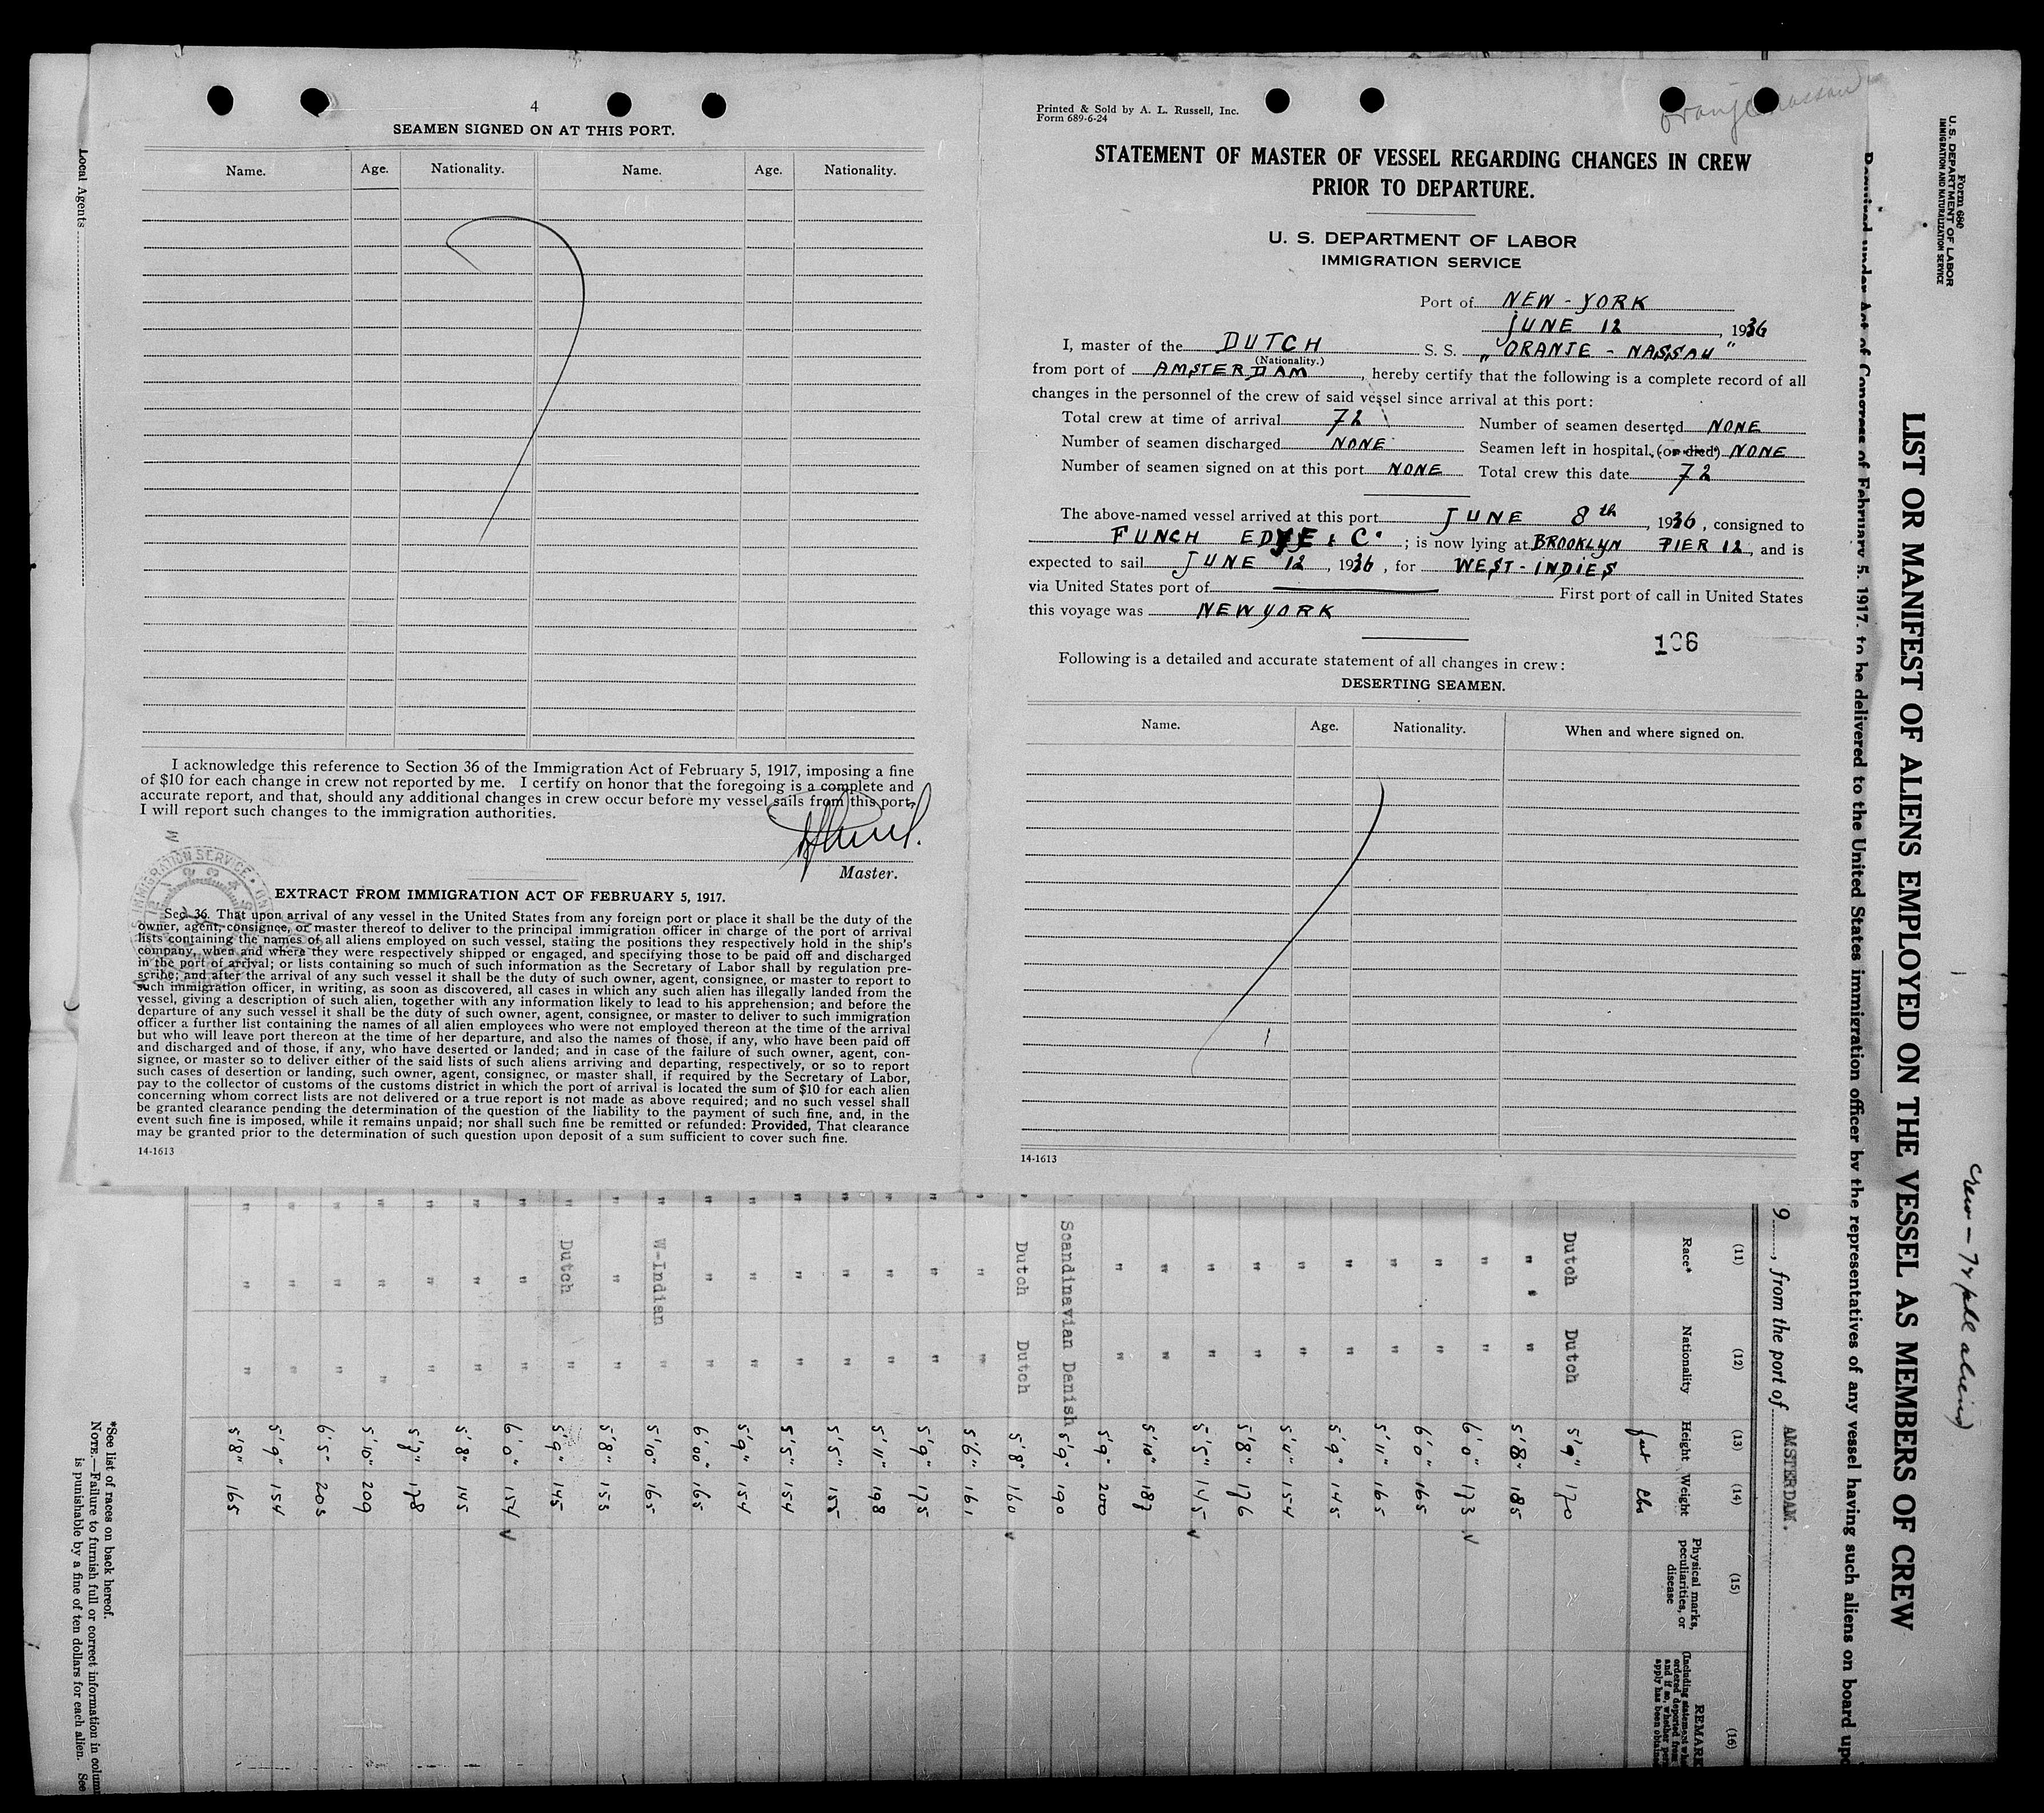 4
SEAMEN SIGNED ON AT THIS PORT.
Name. Age. Nationality. Name. Age. Nationality.
I acknowledge this reference to Section 36 of the Immigration Act of February 5, 1917, imposing a fine
of $10 for each change in crew not reported by me. I certify on honor that the foregoing is a complete and
accurate report, and that, should any additional changes in crew occur before my vessel sails from this port,
I will report such changes to the immigration authorities.
Master.
EXTRACT FROM IMMIGRATION ACT OF FEBRUARY 5, 1917.
Sec. 36. That upon arrival of any vessel in the United States from any foreign port or place it shall be the duty of the
owner, agent, consignee, or master thereof to deliver to the principal immigration officer in charge of the port of arrival
lists containing the names of all aliens employed on such vessel, stating the positions they respectively hold in the ship's
company, when and where they were respectively shipped or engaged, and specifying those to be paid off and discharged
in the port of arrival; or lists containing so much of such information as the Secretary of Labor shall by regulation pre-
scribe; and after the arrival of any such vessel it shall be the duty of such owner, agent, consignee, or master to report to
such immigration officer, in writing, as soon as discovered, all cases in which any such alien has illegally landed from the
vessel, giving a description of such alien, together with any information likely to lead to his apprehension; and before the
departure of any such vessel it shall be the duty of such owner, agent, consignee, or master to deliver to such immigration
officer a further list containing the names of all alien employees who were not employed thereon at the time of the arrival
but who will leave port thereon at the time of her departure, and also the names of those, if any, who have been paid off
and discharged and of those, if any, who have deserted or landed; and in case of the failure of such owner, agent, con-
signee, or master so to deliver either of the said lists of such aliens arriving and departing, respectively, or so to report
such cases of desertion or landing, such owner, agent, consignee, or master shall, if required by the Secretary of Labor,
pay to the collector of customs of the customs district in which the port of arrival is located the sum of $10 for each alien
concerning whom correct lists are not delivered or a true report is not made as above required; and no such vessel shall
be granted clearance pending the determination of the question of the liability to the payment of such fine, and, in the
event such fine is imposed, while it remains unpaid; nor shall such fine be remitted or refunded: Provided, That clearance
may be granted prior to the determination of such question upon deposit of a sum sufficient to cover such fine.
14-1613
Local Agents
Printed & Sold by A. L. Russell, Inc.
Form 689-6-24
Oranje Nassau
STATEMENT OF MASTER OF VESSEL REGARDING CHANGES IN CREW
PRIOR TO DEPARTURE.
U. S. DEPARTMENT OF LABOR
IMMIGRATION SERVICE
Port of NEW-YORK
JUNE 12, 1936
I, master of the DUTCH S. S. „ORANJE-NASSAU"
(Nationality.)
from port of AMSTERDAM, hereby certify that the following is a complete record of all
changes in the personnel of the crew of said vessel since arrival at this port:
Total crew at time of arrival 72 Number of seamen deserted NONE
Number of seamen discharged NONE Seamen left in hospital, (or died) NONE
Number of seamen signed on at this port NONE Total crew this date 72
The above-named vessel arrived at this port JUNE 8th, 1936, consigned to
FUNCH EDYE & C°; is now lying at BROOKLYN PIER 12, and is
expected to sail JUNE 12, 1936, for WEST-INDIES
via United States port of First port of call in United States
this voyage was NEWYORK
106
Following is a detailed and accurate statement of all changes in crew:
DESERTING SEAMEN.
Name. Age. Nationality. When and where signed on.
14-1613
Form 680
U. S. DEPARTMENT OF LABOR
IMMIGRATION AND NATURALIZATION SERVICE
LIST OR MANIFEST OF ALIENS EMPLOYED ON THE VESSEL AS MEMBERS OF CREW
Required under Act of Congress of February 5, 1917, to be delivered to the United States immigration officer by the representatives of any vessel having such aliens on board upo
9, from the port of AMSTERDAM.
(11) (12) (13) (14) (15) (16)
Race* Nationality Height Weight Physical marks, peculiarities, or disease REMAR
lbs
Dutch Dutch 5'9" 170
" " 5'8" 185
" " 6'0" 173 v
" " 6'0" 165
" " 5'11" 165
" " 5'9" 145
" " 5'11" 154
" " 5'8" 176
" " 5'5" 145 v
" " 5'10" 187
" " 5'9" 200
Scandinavian Danish 5'9" 190
Dutch Dutch 5'8" 160 v
" " 5'6" 161
" " 5'9" 175
" " 5'11" 198
" " 5'5" 155
" " 5'5" 154
" " 5'9" 154
" " 6'00" 165
W-Indian " 5'10" 165
" " 5'8" 153
Dutch " 5'9" 145
" " 6'0" 154 v
" " 5'8" 145
" " 5'7" 178
" " 5'10" 209
" " 6'5" 203
" " 5'9" 154
" " 5'8" 165
*See list of races on back hereof.
NOTE.—Failure to furnish full or correct information in colum
is punishable by a fine of ten dollars for each alien. See